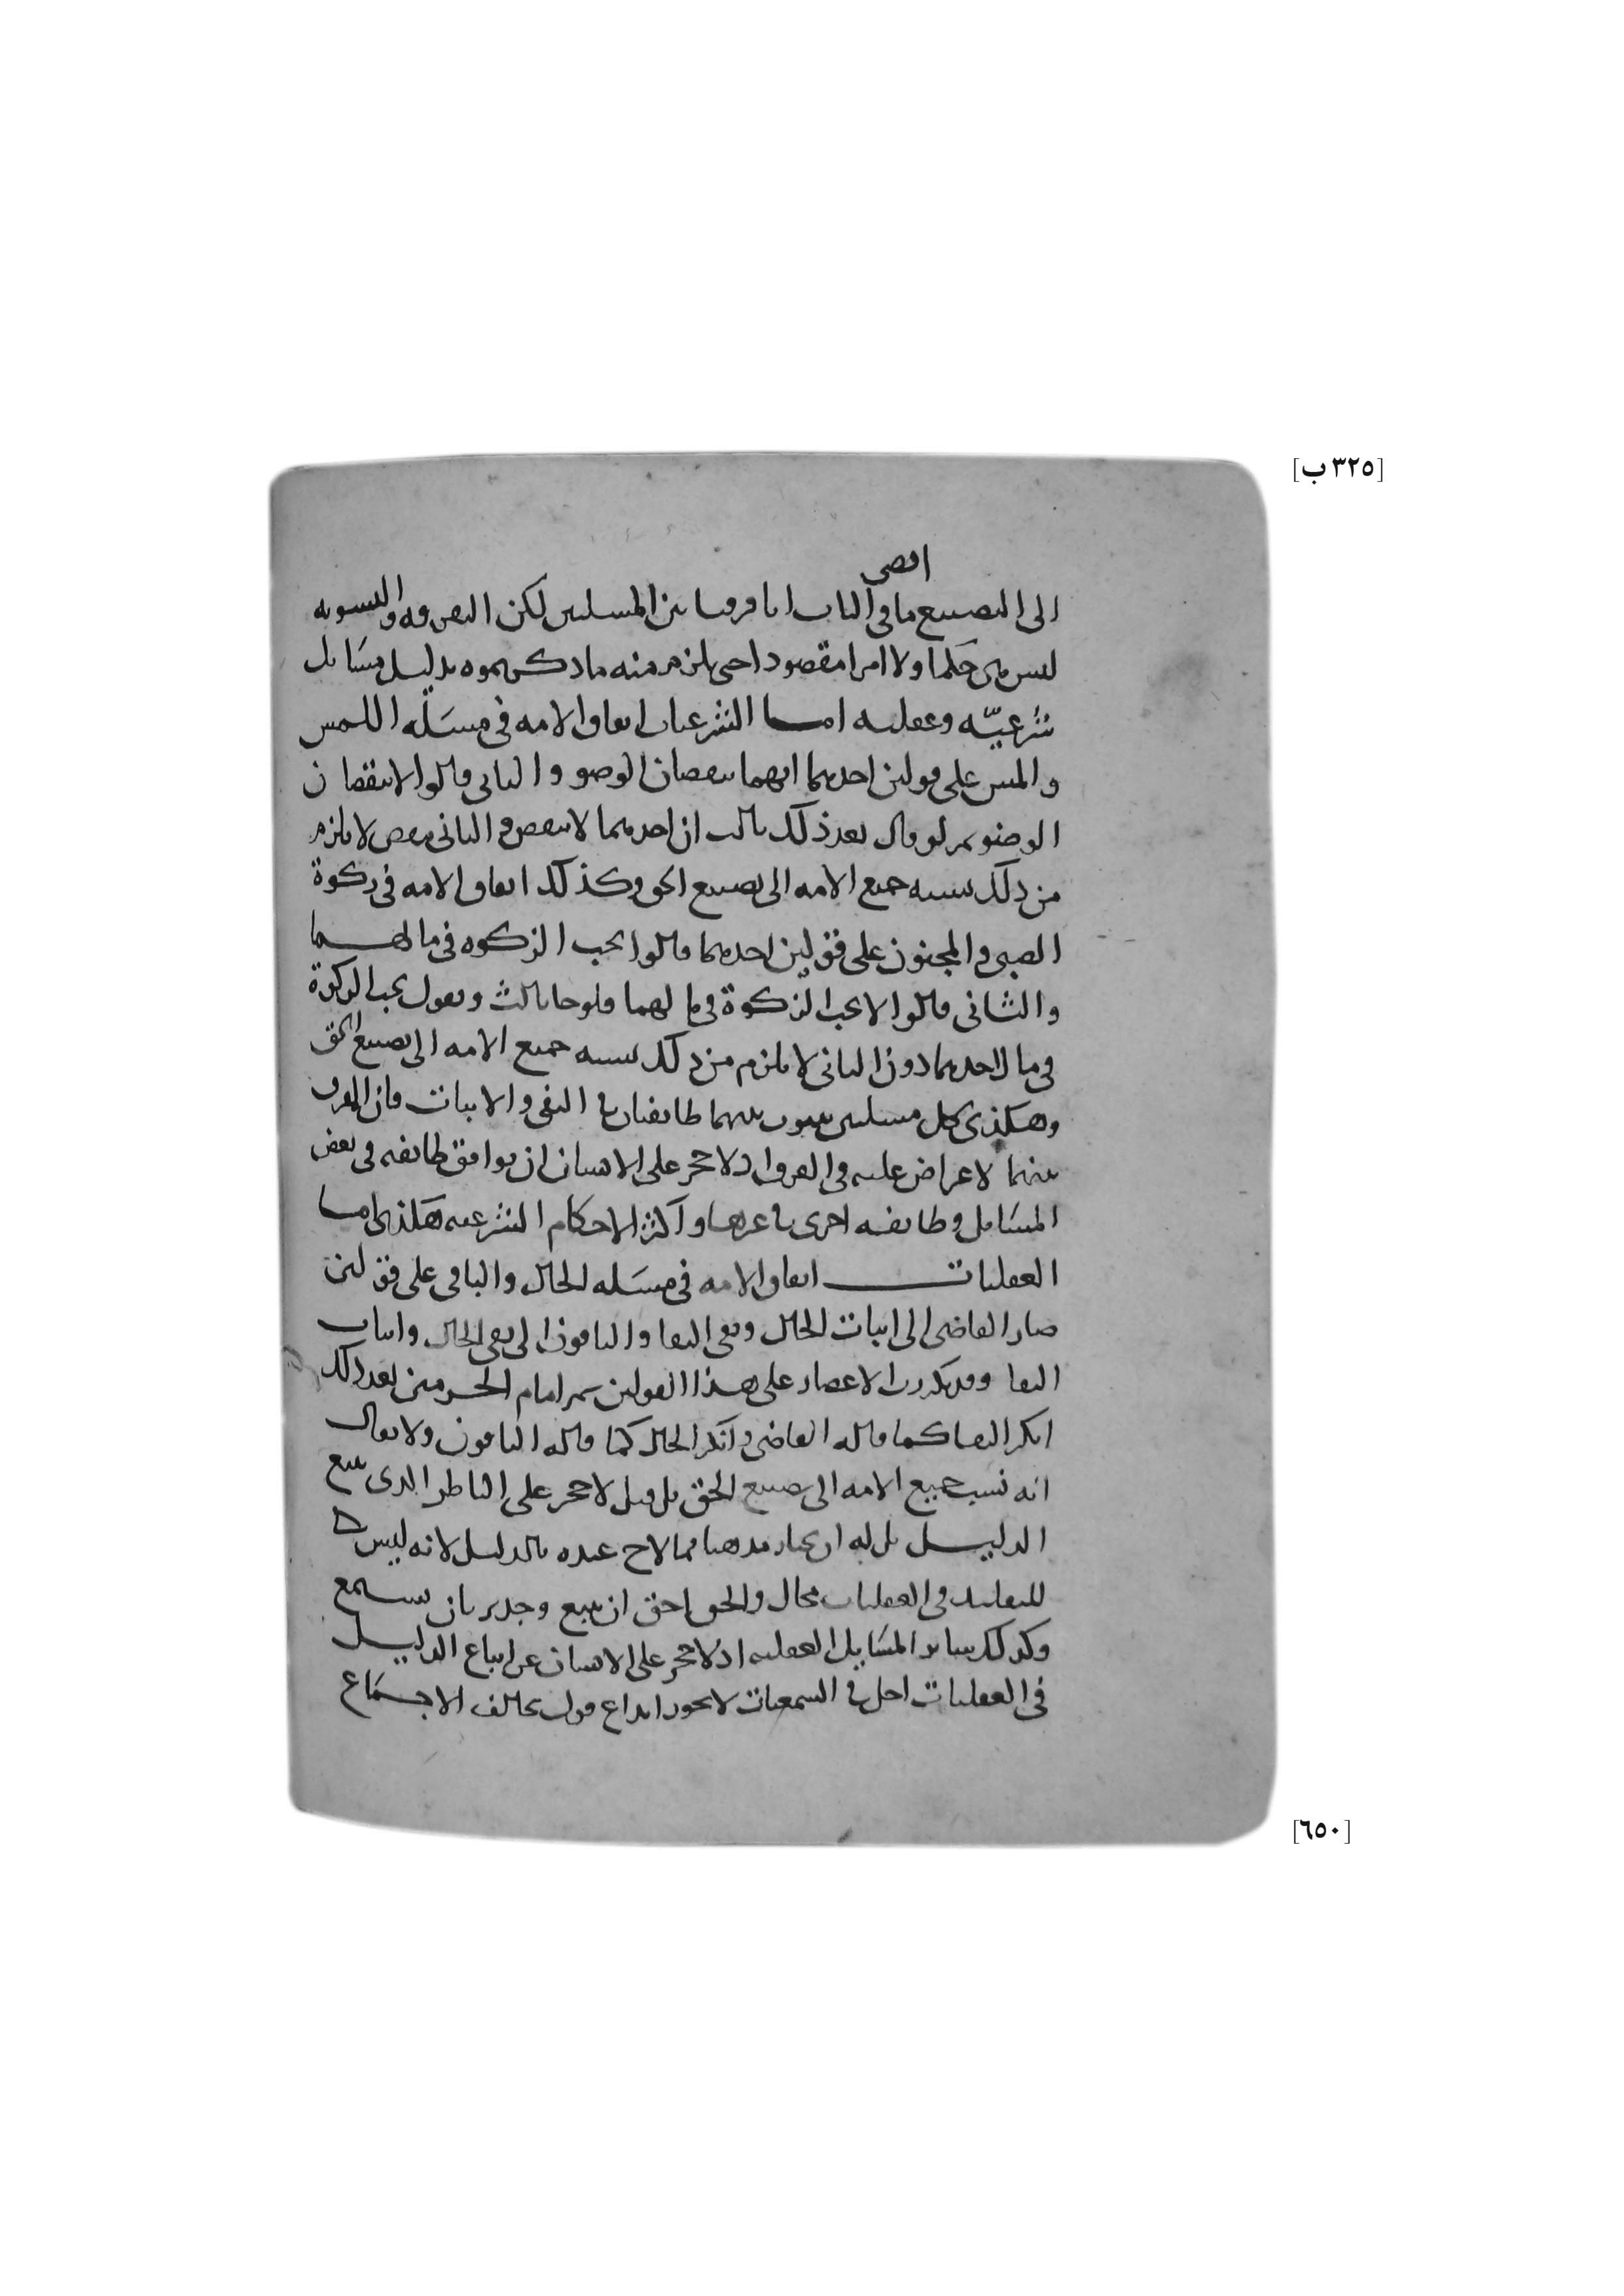 [٣٢٥ ب]
اقصى
الى التضييع ما في الباب انا فرقنا بين المسلتين لكن التفرقه والتسويه
ليس هي حكما ولا امرا مقصودا حتى يلزم منه ما ذكرتموه بدليل مسَايل
شرعيّه وعقليه امــا الشرعيات اتفاق الامه في مسَلة اللمس
والمس على قولين احدهما انهما ينقضان الوضو والثاني قالوا لا ينقضان
الوضو ثم لو قال بعد ذلك ثالث ان احدهما لا ينقض والثاني ينقض لا يلزم
من ذلك نسبه جميع الامه الى تضييع الحق وكذلك اتفاق الامه في زكوة
الصبي والمجنون على قولين احدهما قالوا يجب الزكوه في مالهــما
والثاني قالوا لا يجب الزكوة في مالهما فلو جا ثالث ويقول يجب الزكوة
في مال احدهما دون الثاني لا يلزم من ذلك نسبه جميع الامه الى تضييع الحق
وهكذى كل مسلتين بينهما طايفتان في النفي والاثبات فان الفرق
بينهما لا اعتراض عليه في الفرق اذ لا حجر على الانسان ان يوافق طايفه في بعض
المسَايل وطايفه اخرى في غيرها واكثر الاحكام الشرعيه هَكذى امــا
العقليات اتفاق الامه في مسَله الحال والباقي على قولين
صار القاضي الى اثبات الحال ونفي البقا والباقون الى نفي الحال واثبات
البقا وقد تكررت الاعصار على هذا القولين ثم امام الحــرمين بعد ذلك
انكر البقا كما قاله القاضي وانكر الحال كما قاله الباقون ولا يقال
انه نسب جميع الامه الى تضييع الحق بل قيل لا حجر على الناظر الذى يتبع
الدليــل بل له ان يختار مذهبا مما لاح عنده بالدليل لانه ليس
للتقليد في العقليات مجال والحق احق ان يتبع وجدير بان يستمع
وكذلك ساير المسَايل العقليه اذ لا حجر على الانسان عن اتباع الدليــل
في العقليات اجل في السمعيات لا يجوز ابداع قول يخالف الاجــمَاع
[٦٥٠]